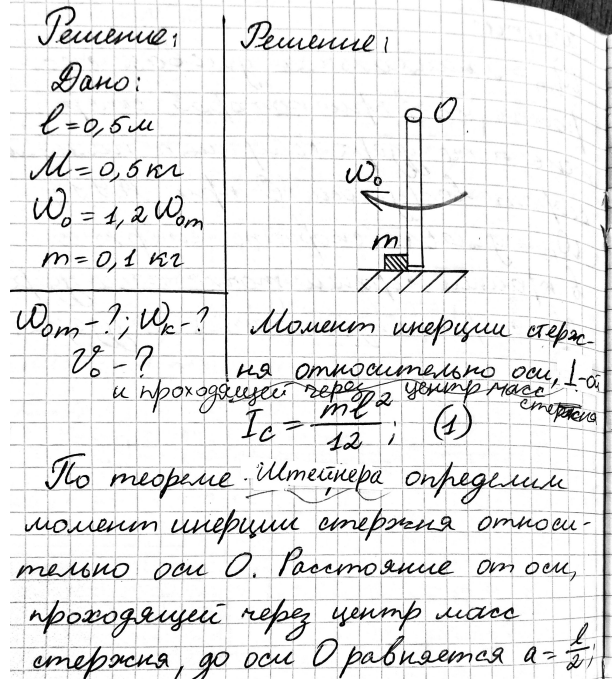 Решение:
Дано:
l = 0,5 м
M = 0,5 кг
ω₀ = 1,2 ω₀m
m = 0,1 кг
ω₀m - ?; ωк - ?
v₀ - ?
Решение:
O
ω₀
m
Момент инерции стерж-
ня относительно оси, ⊥-ой
и проходящей через центр масс
стержня
I_c = ml²/12; (1)
По теореме Штейнера определим
момент инерции стержня относи-
тельно оси O. Расстояние от оси,
проходящей через центр масс
стержня, до оси O равняется a = l/2;